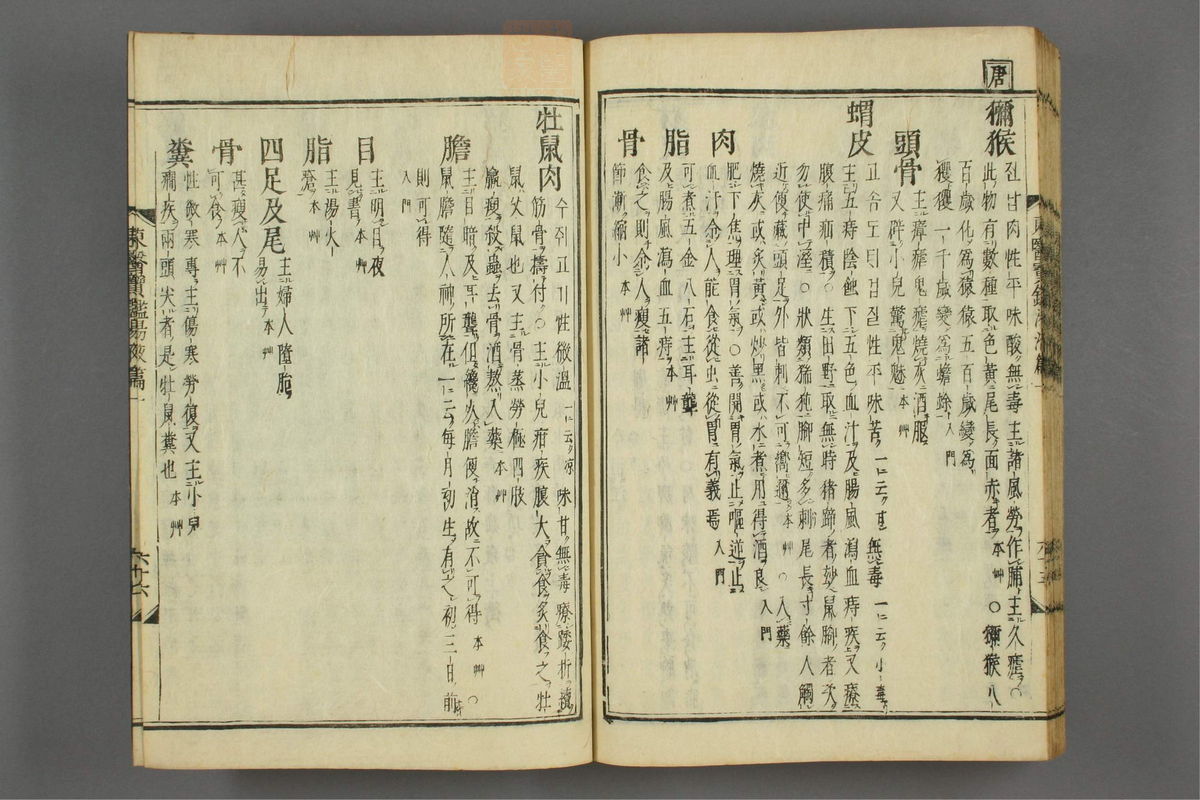 唐
獼猴 진납 肉性平味酸無毒主諸風勞作脯主久瘧○
此物有數種取色黃尾長面赤者 本艸 ○獼猴八
百歲化爲猿猿五百歲變爲
玃玃一千歲變爲蟾蜍 入門
頭骨 主瘴瘧鬼瘧燒灰酒服
又辟小兒驚鬼魅 本艸
蝟皮 고솜도틔겁질 性平味苦 一云甘 無毒 一云小毒
主五痔陰蝕下五色血汁及腸風瀉血痔疾又療
腹痛疝積○生田野取無時猪蹄者妙鼠脚者次
勿使中濕○狀類猯㹠脚短多刺尾長寸餘人觸
近便藏頭足外皆刺不可嚮邇 本艸 ○入藥
燒灰或炙黃或炒黑或水煮用得酒良 入門
肉 肥下焦理胃氣○善開胃氣止嘔逆止
血汗令人能食從虫從胃有義焉 入門
脂 可煮五金八石主耳聾
及腸風瀉血五痔 本艸
骨 食之則令人瘦諸
節漸縮小 本艸
東醫寶鑑湯液篇一
牡鼠肉 수쥐고기 性微溫 一云凉 味甘無毒療踒折續
筋骨擣付○主小兒疳疾腹大貪食炙食之牡
鼠父鼠也又主骨蒸勞極四肢
羸瘦殺蟲去骨酒熬入藥 本艸
膽 主目暗及耳聾但纔死膽便消故不可得 本艸 ○
鼠膽隨人神所在一云每月初生有之初三日前
則可得
入門
目 主明目夜
見書 本艸
脂 主湯火
瘡 本艸
四足及尾 主婦人墮胎
易出 本艸
骨 甚瘦人不
可食 本艸
糞 性微寒專主傷寒勞復又主小兒
癎疾兩頭尖者是牡鼠糞也 本艸
東醫寶鑑湯液篇一
六十六